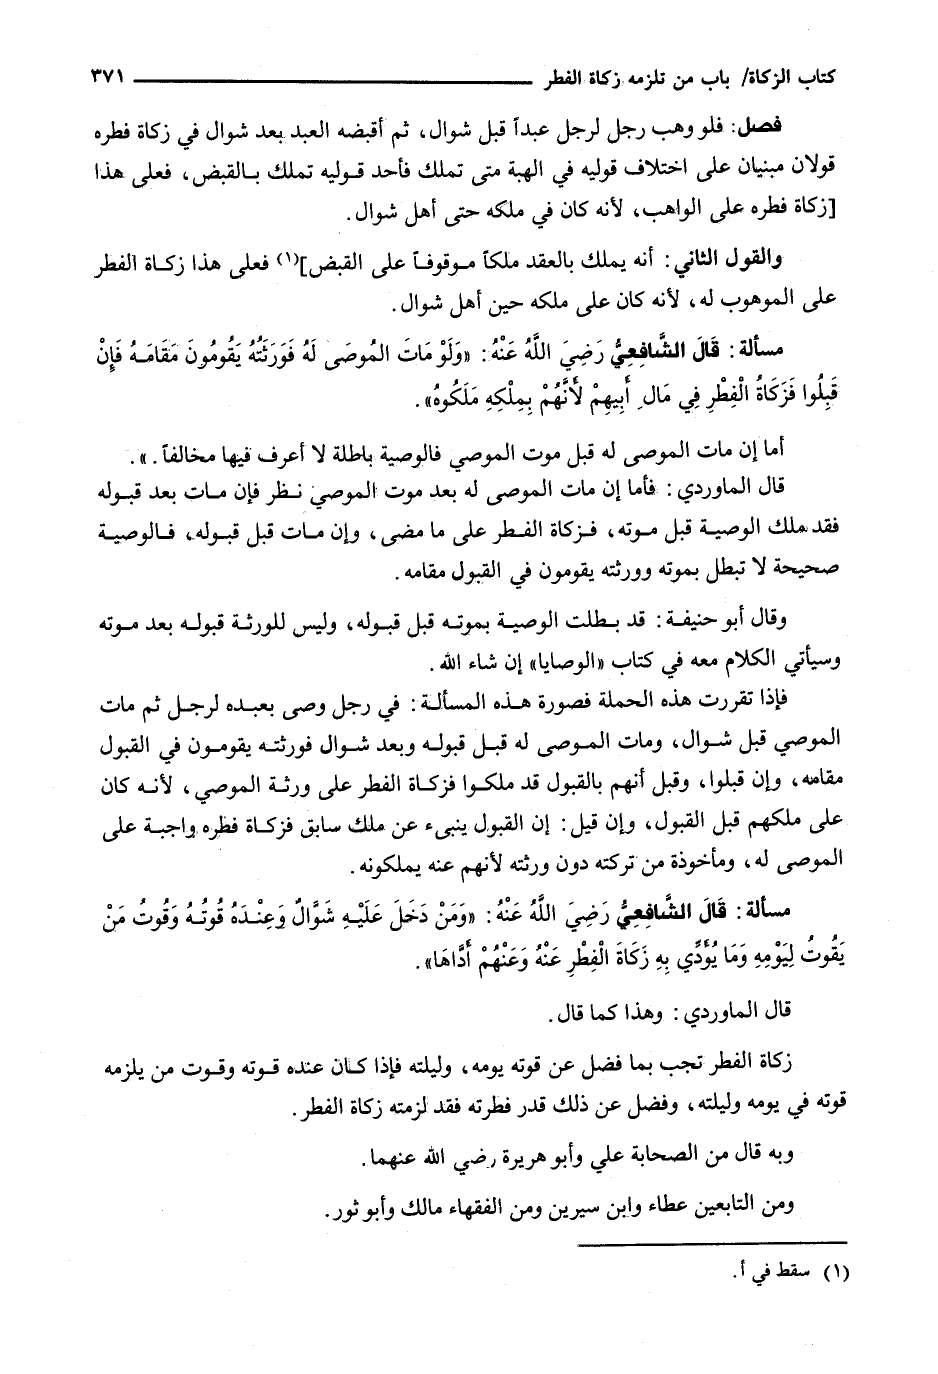 كتاب الزكاة/ باب من تلزمه زكاة الفطر ٣٧١
فصل: فلو وهب رجل لرجل عبداً قبل شوال، ثم أقبضه العبد بعد شوال في زكاة فطره
قولان مبنيان على اختلاف قوليه في الهبة متى تملك فأحد قوليه تملك بالقبض، فعلى هذا
[زكاة فطره على الواهب، لأنه كان في ملكه حتى أهل شوال.
والقول الثاني: أنه يملك بالعقد ملكاً موقوفاً على القبض](١) فعلى هذا زكاة الفطر
على الموهوب له، لأنه كان على ملكه حين أهل شوال.
مسألة: قَالَ الشَّافِعِيُّ رَضِيَ اللَّهُ عَنْهُ: «وَلَوْ مَاتَ المُوصَى لَهُ فَوَرَثَتُهُ يَقُومُونَ مَقَامَهُ فَإِنْ
قَبِلُوا فَزَكَاةُ الْفِطْرِ فِي مَالِ أَبِيهِمْ لأَنَّهُمْ بِمِلْكِهِ مَلَكُوهُ».
أما إن مات الموصى له قبل موت الموصي فالوصية باطلة لا أعرف فيها مخالفاً.».
قال الماوردي: فأما إن مات الموصى له بعد موت الموصي نظر فإن مات بعد قبوله
فقد ملك الوصية قبل موته، فزكاة الفطر على ما مضى، وإن مات قبل قبوله، فالوصية
صحيحة لا تبطل بموته وورثته يقومون في القبول مقامه.
وقال أبو حنيفة: قد بطلت الوصية بموته قبل قبوله، وليس للورثة قبوله بعد موته
وسيأتي الكلام معه في كتاب «الوصايا» إن شاء الله.
فإذا تقررت هذه الحملة فصورة هذه المسألة: في رجل وصى بعبده لرجل ثم مات
الموصي قبل شوال، ومات الموصى له قبل قبوله وبعد شوال فورثته يقومون في القبول
مقامه، وإن قبلوا، وقبل أنهم بالقبول قد ملكوا فزكاة الفطر على ورثة الموصي، لأنه كان
على ملكهم قبل القبول، وإن قيل: إن القبول ينبىء عن ملك سابق فزكاة فطره واجبة على
الموصى له، ومأخوذة من تركته دون ورثته لأنهم عنه يملكونه.
مسألة: قَالَ الشَّافِعِيُّ رَضِيَ اللَّهُ عَنْهُ: «وَمَنْ دَخَلَ عَلَيْهِ شَوَّالٌ وَعِنْدَهُ قُوتُهُ وَقُوتُ مَنْ
يَقُوتُ لِيَوْمِهِ وَمَا يُؤَدِّي بِهِ زَكَاةَ الْفِطْرِ عَنْهُ وَعَنْهُمْ أَدَّاهَا».
قال الماوردي: وهذا كما قال.
زكاة الفطر تجب بما فضل عن قوته يومه، وليلته فإذا كان عنده قوته وقوت من يلزمه
قوته في يومه وليلته، وفضل عن ذلك قدر فطرته فقد لزمته زكاة الفطر.
وبه قال من الصحابة علي وأبو هريرة رضي الله عنهما.
ومن التابعين عطاء وابن سيرين ومن الفقهاء مالك وأبو ثور.
(١) سقط في أ.